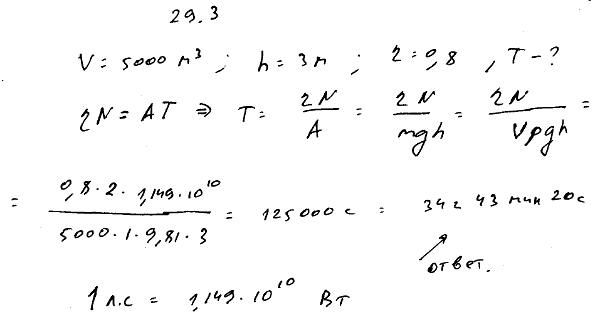 29.3
V = 5000 м³ ; h = 3 м ; η = 0,8 , T - ?
ηN = AT ⇒ T = ηN/A = ηN/mgh = ηN/Vρgh =
= 0,8 · 2 · 1,149 · 10¹⁰ / 5000 · 1 · 9,81 · 3 = 125000 с = 34 ч 43 мин 20 с
ответ.
1 л.с = 1,149 · 10¹⁰ Вт